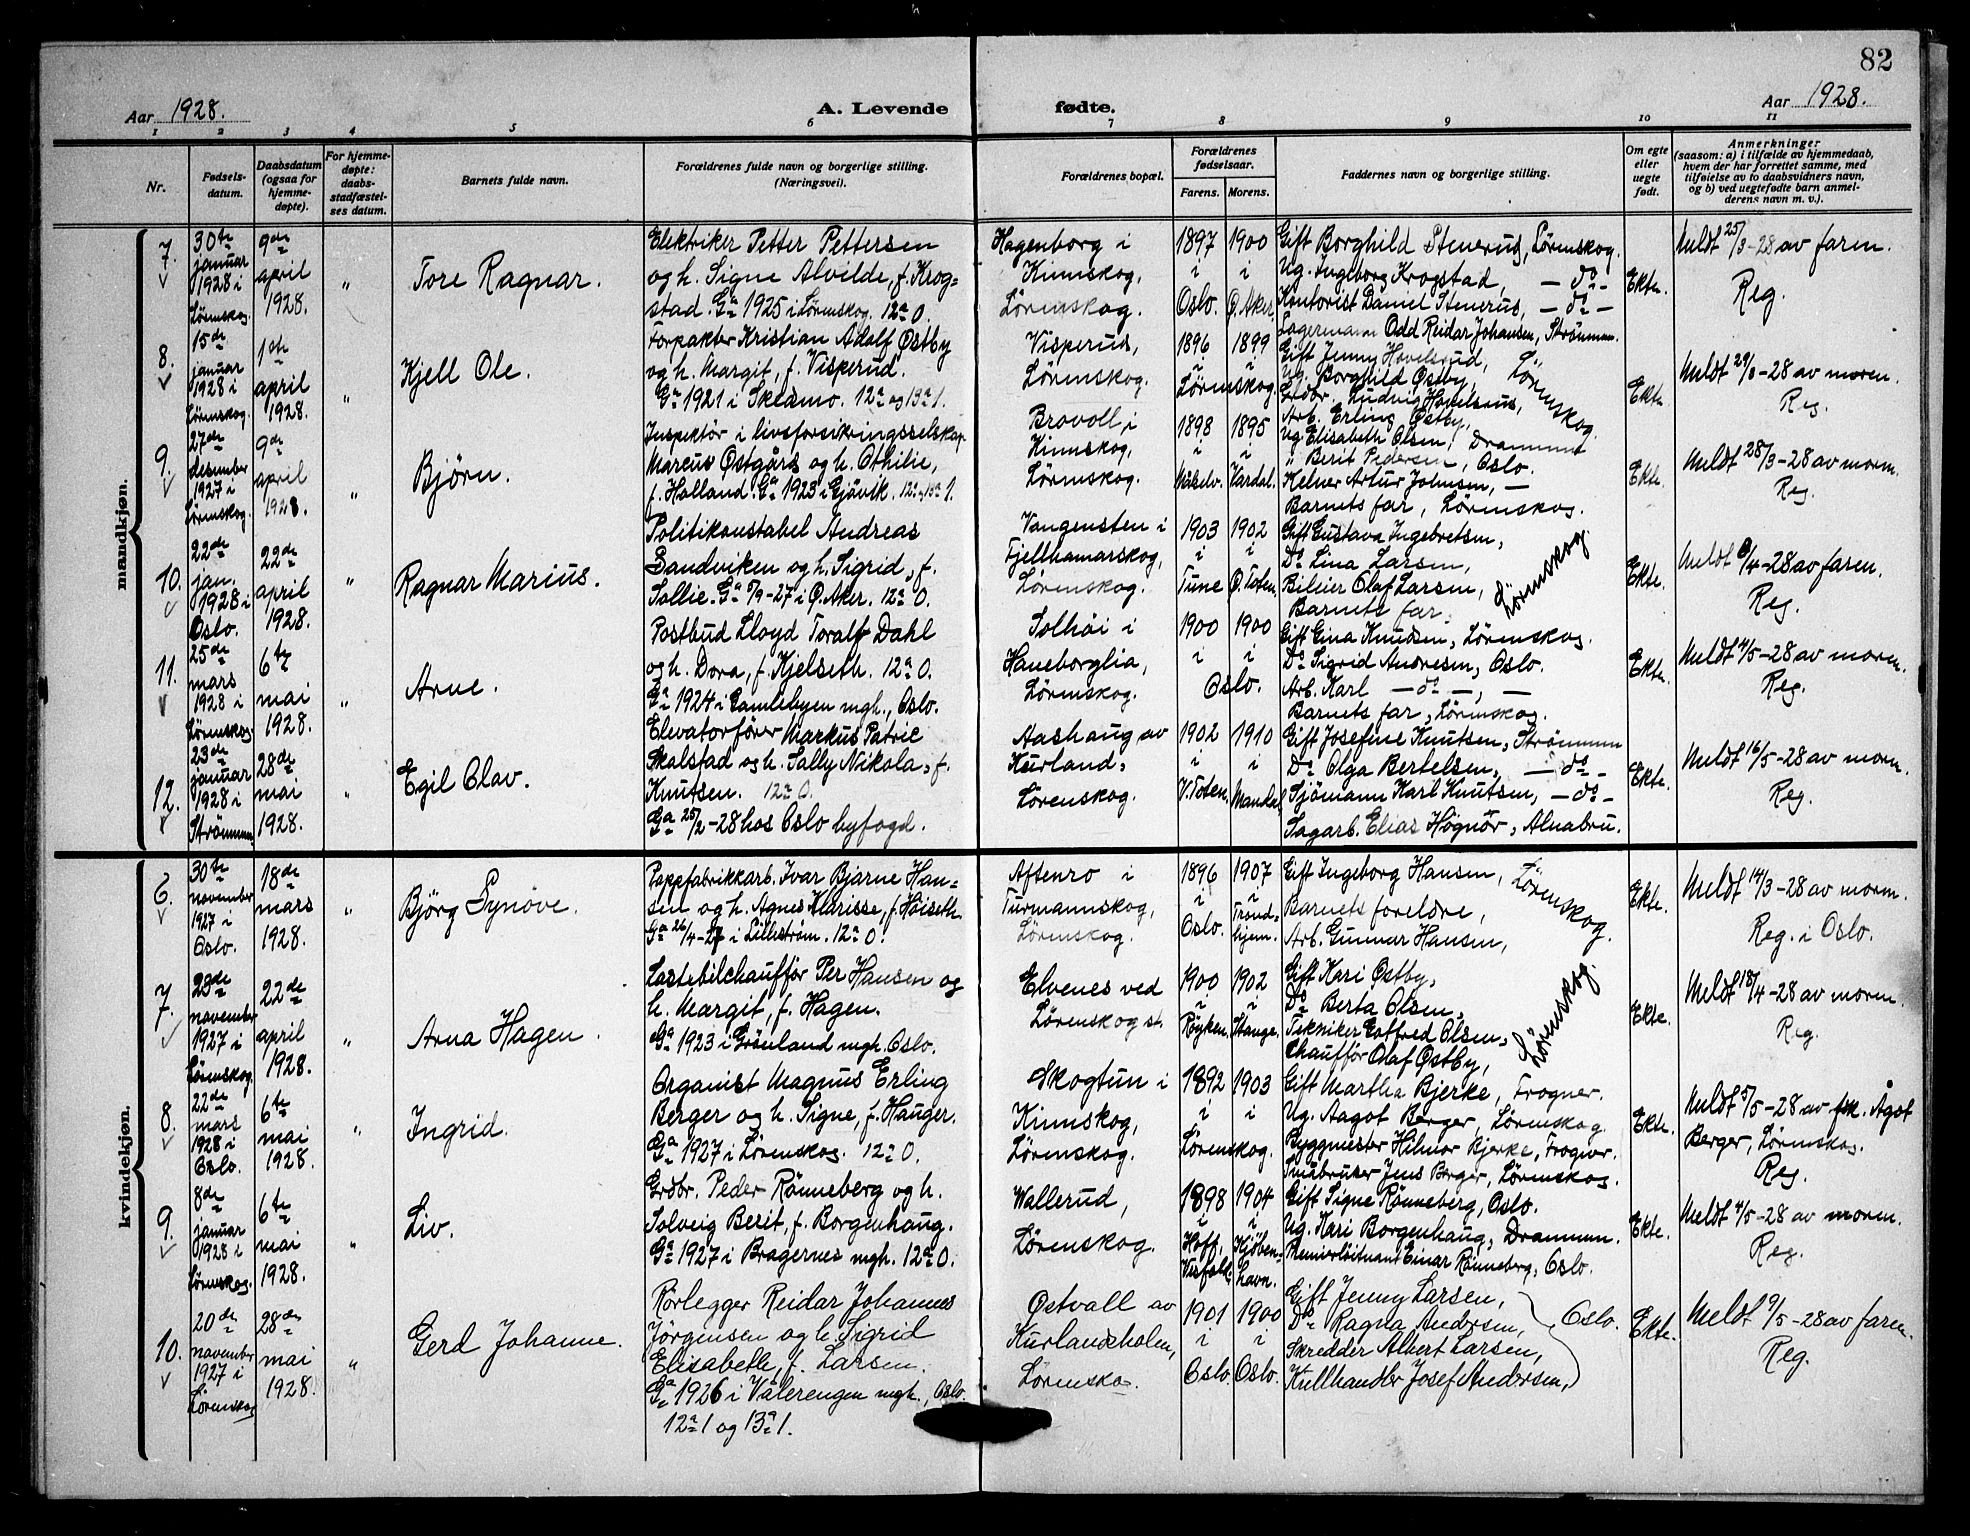 82
Aar 1928.
A. Levende fødte.
Aar 1928.
1 2 3 4 5 6 7 8 9 10 11
Nr.
Fødsels-
datum.
Daabsdatum
(ogsaa for
hjemme-
døpte).
For hjemme-
døpte:
daabs-
stadfæstel-
ses datum.
Barnets fulde navn.
Forældrenes fulde navn og borgerlige stilling.
(Næringsvei).
Forældrenes bopæl.
Forældrenes
fødselsaar.
Farens. Morens.
Faddernes navn og borgerlige stilling.
Om egte
eller
uegte
født.
Anmerkninger
(saasom: a) i tilfælde av hjemmedaab,
hvem der har forrettet samme, med
tilføielse av to daabsvidners navn,
og b) ved uegtefødte barn anmel-
derens navn m. v.).
mandkjøn.
7.
30te
januar
1928 i
Lørenskog.
9de
april
1928.
"
Tore Ragnar.
Elektriker Petter Pettersen
og h. Signe Alvilde, f. Krog-
stad. Ga 1925 i Lørenskog. 12a 0.
Hagenborg i
Kinnskog,
Lørenskog.
1897 i Oslo.
1900 i Ø. Aker.
Gift Borghild Stenerud, Lørenskog.
Ug. Ingeborg Krogstad, — do —
Kontorist Daniel Stenerud, — do —
Lagermann Odd Reidar Johansen, Strømmen.
Ekte.
Meldt 25/3-28 av faren.
Reg.
8.
15de
januar
1928 i
Lørenskog.
1ste
april
1928.
"
Kjell Ole.
Forpakter Kristian Adolf Østby
og h. Margit, f. Visperud.
Ga 1921 i Skedsmo. 12a og 13a 1.
Visperud,
Lørenskog.
1896 1899
Lørenskog.
Gift Jenny Hovelsrud,
Ug. Borghild Østby,
Grdbr. Ludvig Hovelsrud,
Arb. Erling Østby,
Lørenskog.
Ekte.
Meldt 29/ -28 av moren.
Reg.
9.
27de
desember
1927 i
Lørenskog.
9de
april
1928.
"
Bjørn.
Inspektør i livsforsikringsselskap
Marcus Østgård og h. Othilie,
f. Holland. Ga 1923 i Gjøvik. 12a og 13a 1.
Brovoll i
Kinnskog,
Lørenskog.
1898 i Målselv.
1895 i Vardal.
Ug. Elisabeth Olsen, Drammen
" Berit Pedersen, Oslo.
Kelner Artur Johnsen, —
Barnets far, Lørenskog.
Ekte.
Meldt 28/3-28 av moren.
Reg.
10.
22de
jan.
1928 i
Oslo.
22de
april
1928.
"
Ragnar Marius.
Politikonstabel Andreas
Sandviken og h. Sigrid, f.
Sollie. Ga /9-27 i Ø. Aker. 12a 0.
Vangensten i
Fjellhamarskog,
Lørenskog.
1903 i Tune
1902 i Ø. Toten.
Gift Gustava Ingebretsen,
Do Lina Larsen,
Bileier Olaf Larsen,
Barnets far,
Lørenskog
Ekte.
Meldt /4-28 av faren.
Reg.
11.
25de
mars
1928 i
Lørenskog.
6te
mai
1928.
"
Arne.
Postbud Lloyd Toralf Dahl
og h. Dora, f. Kjelseth. 12a 0.
Ga 1924 i Gamlebyen mgh., Oslo.
Solhøi i
Haneborglia,
Lørenskog.
1900 i 1900 i
Oslo.
Gift Gina Knudsen, Lørenskog.
Do Sigrid Andresen, Oslo.
Arb. Karl — do —, —
Barnets far, Lørenskog.
Ekte.
Meldt 4/5-28 av moren.
Reg.
12.
23de
januar
1928 i
Strømmen
28de
mai
1928.
"
Egil Olav.
Elevatorfører Markus Patric
Skalstad og h. Sally Nikola, f.
Knutsen. 12a 0.
Ga 25/2-28 hos Oslo byfogd.
Aashaug av
Kurland,
Lørenskog.
1902 i V. Toten.
1910 i Mandal,
Gift Josefine Knutsen, Strømmen
Do Olga Bertelsen, — do —
Sjømann Karl Knutsen, — do —
Sagarb. Elias Høgnør, Alnabru.
Ekte.
Meldt 16/5-28 av moren.
Reg.
kvindekjøn.
6.
30te
november
1927 i
Oslo.
18de
mars
1928.
"
Bjørg Synøve.
Pappfabrikkarb. Ivar Bjarne Han-
sen og h. Agnes Klarisse, f. Høiseth.
Ga 26/4-27 i Lillestrøm. 12a 0.
Aftenro i
Turmannskog,
Lørenskog.
1896 i Oslo.
1907 i Trond-
hjem.
Gift Ingeborg Hansen,
Barnets foreldre,
Arb. Gunnar Hansen,
Lørenskog.
Ekte.
Meldt 14/3-28 av moren.
Reg. i Oslo.
7.
23de
november
1927 i
Lørenskog
22de
april
1928.
"
Arna Hagen.
Lastebilchauffør Per Hansen og
h. Margit, f. Hagen.
Ga 1923 i Grønland mgh. Oslo.
Elvenes ved
Lørenskog st.
1900 i Røyken.
1902 i Stange.
Gift Kari Østby,
Do Berta Olsen,
Tekniker Gotfred Olsen,
Chauffør Olaf Østby,
Lørenskog.
Ekte.
Meldt 18/4-28 av moren.
Reg.
8.
22de
mars
1928 i
Oslo.
6te
mai
1928.
"
Ingrid.
Organist Magnus Erling
Berger og h. Signe, f. Hauger.
Ga 1927 i Lørenskog. 12a 0.
Skogtun i
Kinnskog,
Lørenskog.
1892 i 1903 i
Lørenskog.
Gift Martha Bjerke, Frogner.
Ug. Aagot Berger, Lørenskog.
Byggmester Hilmar Bjerke, Frogner.
Småbruker Jens Berger, Lørenskog.
Ekte.
Meldt 5/5-28 av frk. Ågot
Berger, Lørenskog.
Reg.
9.
8de
januar
1928 i
Lørenskog.
6te
mai
1928.
"
Liv.
Grdbr. Peder Rønneberg og h.
Solveig Berit, f. Borgenhaug.
Ga 1927 i Bragernes mgh. 12a 0.
Wallerud,
Lørenskog.
1898 i Hoff,
Vestfold.
1904 i Kjøben-
havn.
Gift Signe Rønneberg, Oslo.
Ug. Kari Borgenhaug, Drammen.
Premierløitnant Einar Rønneberg, Oslo.
Ekte.
Meldt 4/5-28 av moren.
Reg.
10.
20de
november
1927 i
Lørenskog
28de
mai
1928.
"
Gerd Johanne.
Rørlegger Reidar Johannes
Jørgensen og h. Sigrid
Elisabeth, f. Larsen.
Ga 1926 i Vålerengen mgh., Oslo.
12a 1 og 13a 1.
Østvall av
Kurlandsholen,
Lørensko.
1901 i Oslo.
1900 i Oslo.
Gift Jenny Larsen,
Do Ragna Andersen,
Skredder Albert Larsen,
Kullhandler Josef Andersen,
Oslo.
Ekte.
Meldt 9/5-28 av faren.
Reg.